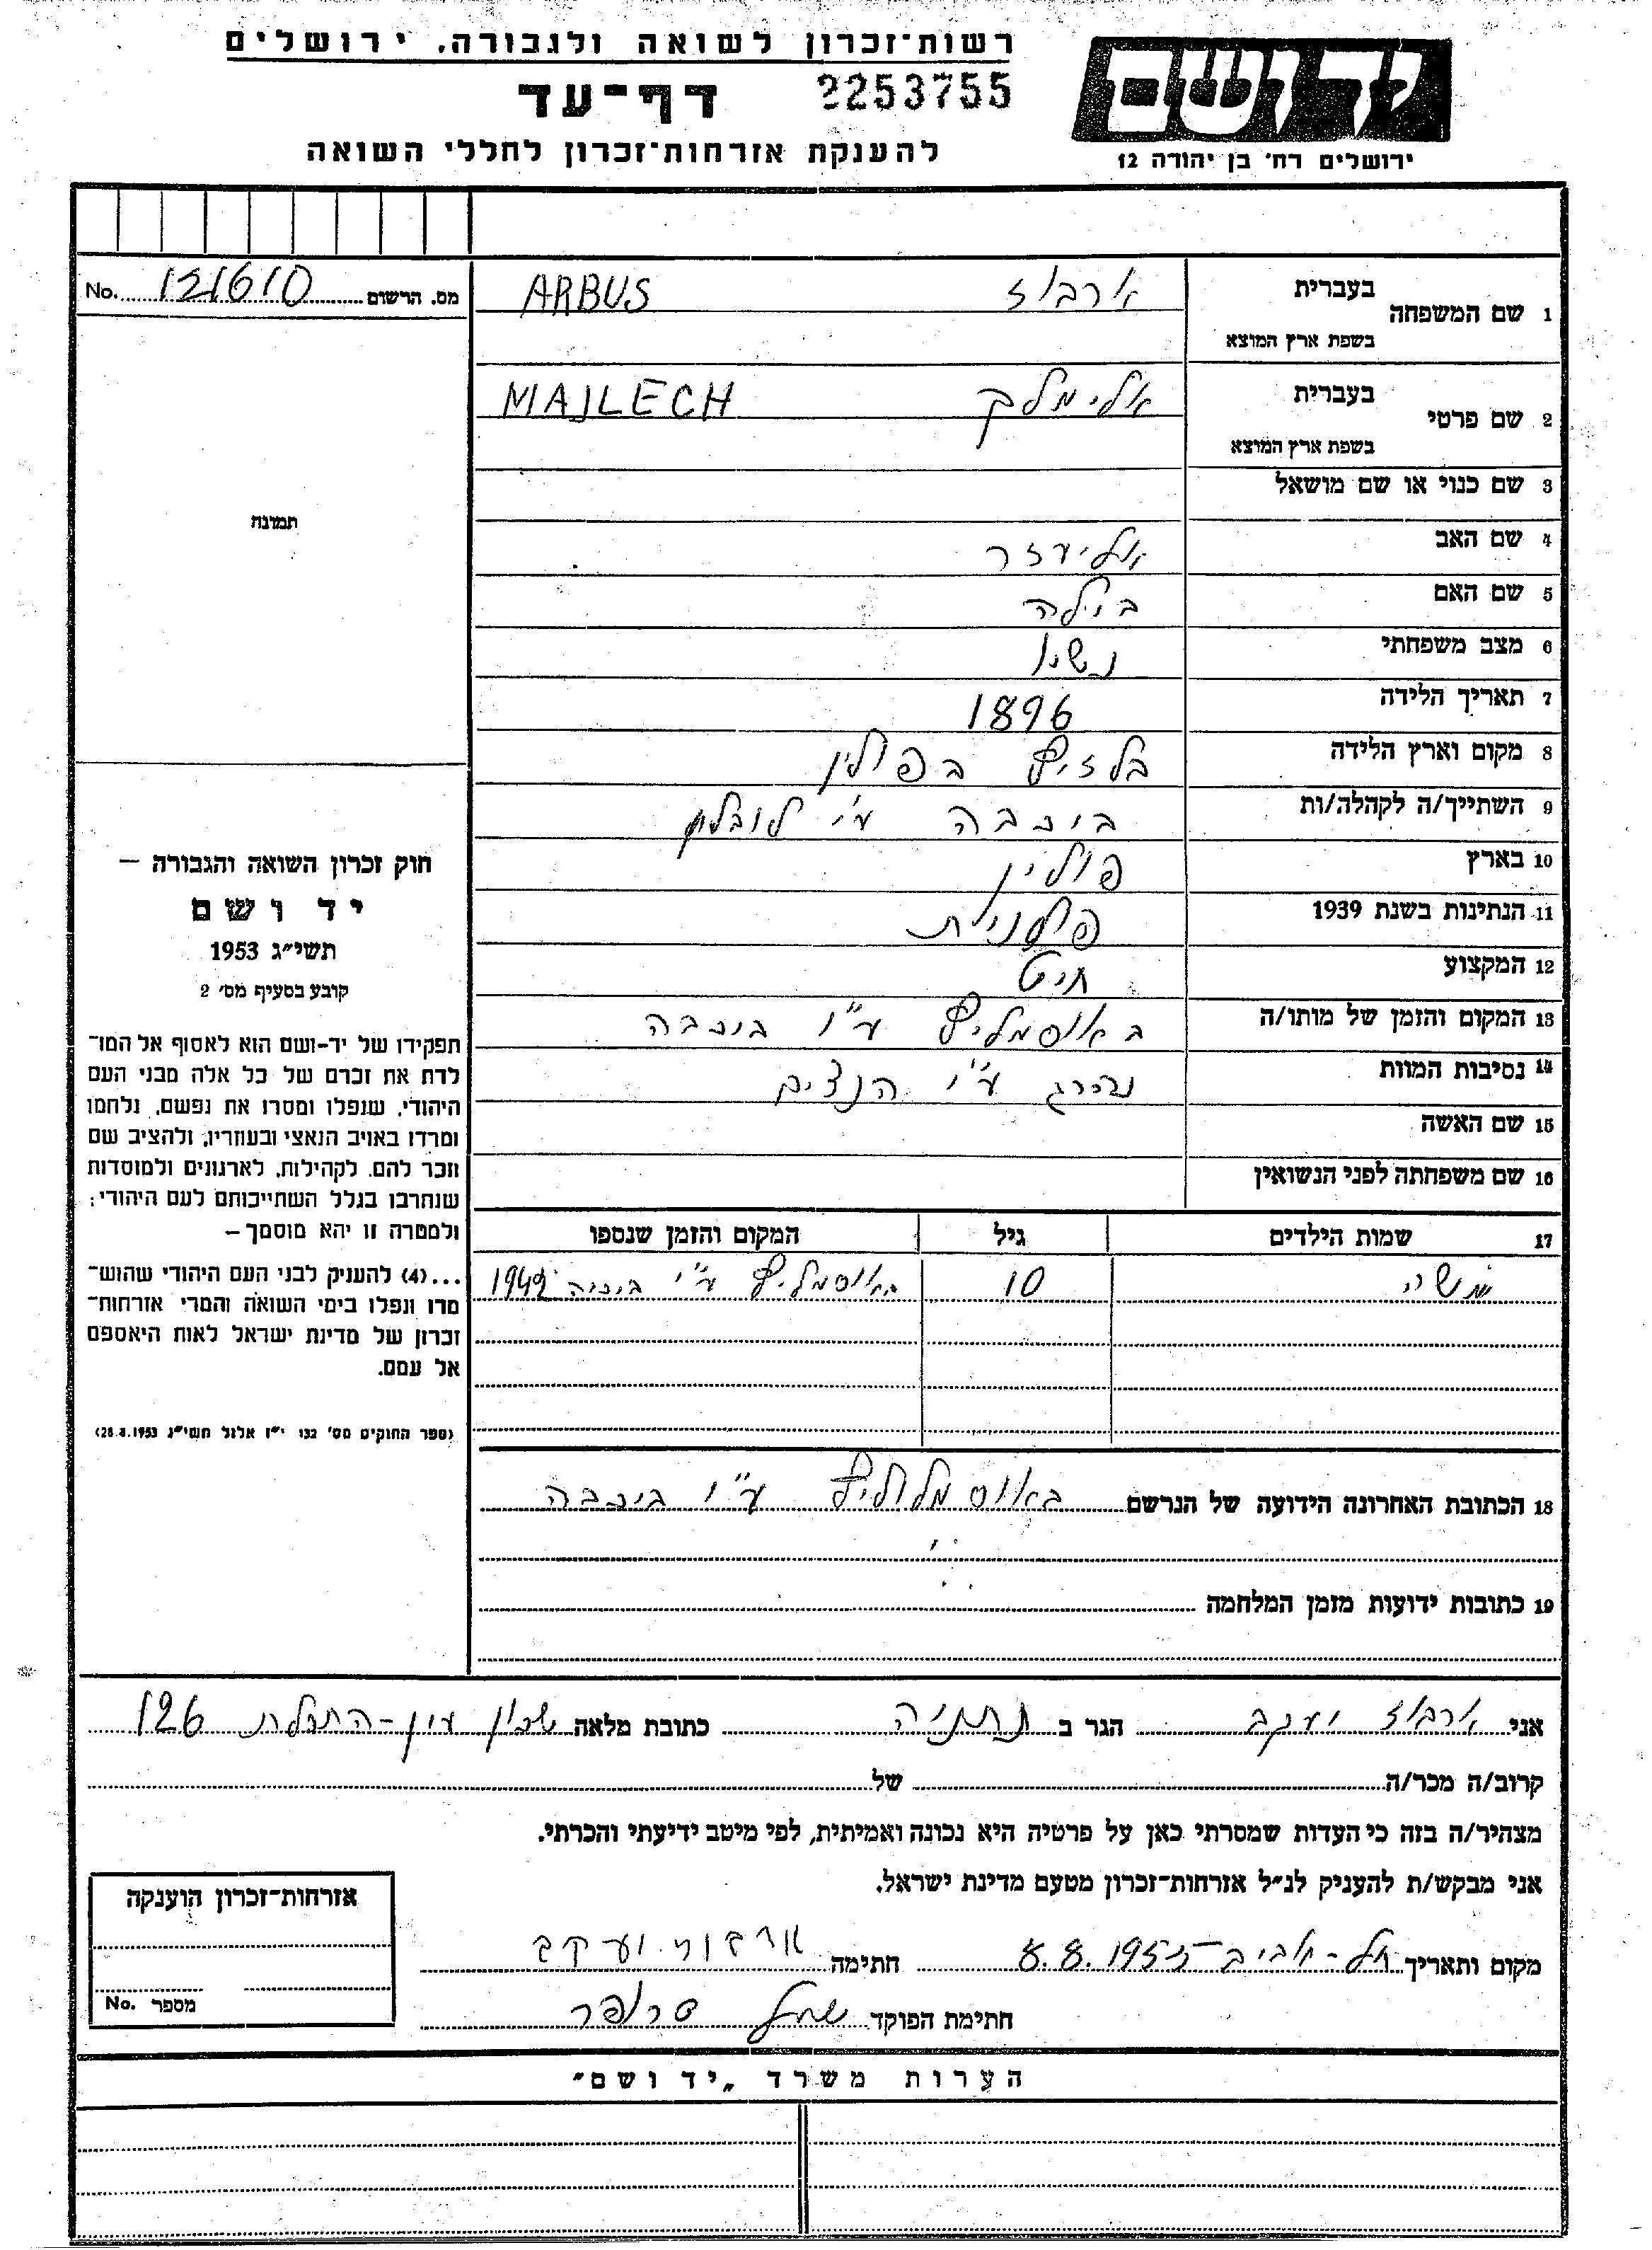 רשות־זכרון לשואה ולגבורה. ירושלים
2253755
דף־עד
להענקת אזרחות־זכרון לחללי השואה
יד ושם
ירושלים רח׳ בן יהודה 12
מס. הרשום 121610 No.
1 שם המשפחה
בעברית ארבוז ARBUS
בשפת ארץ המוצא
2 שם פרטי
בעברית אלימלך MAJLECH
בשפת ארץ המוצא
3 שם כנוי או שם מושאל
4 שם האב אליעזר
5 שם האם בילה
6 מצב משפחתי נשוי
7 תאריך הלידה 1896
8 מקום וארץ הלידה בפולין
9 השתייך/ה לקהלה/ות ביכבה ע״י לובלין
10 בארץ פולין
11 הנתינות בשנת 1939 פולנית
12 המקצוע חייט
13 המקום והזמן של מותו/ה ע״י ביכבה
14 נסיבות המוות נהרג ע״י הנצים
15 שם האשה
16 שם משפחתה לפני הנשואין
17 שמות הילדים גיל המקום והזמן שנספו
משה 10 ע״י ביכבה 1942
18 הכתובת האחרונה הידועה של הנרשם ע״י ביכבה
19 כתובות ידועות מזמן המלחמה
תמונה
חוק זכרון השואה והגבורה —
יד ושם
תשי״ג 1953
קובע בסעיף מס׳ 2
תפקידו של יד-ושם הוא לאסוף אל המו־
לדת את זכרם של כל אלה מבני העם
היהודי, שנפלו ומסרו את נפשם, נלחמו
ומרדו באויב הנאצי ובעוזריו, ולהציב שם
וזכר להם, לקהילות, לארגונים ולמוסדות
שנחרבו בגלל השתייכותם לעם היהודי;
ולמטרה זו יהא מוסמך —
...(4) להעניק לבני העם היהודי שהוש־
מדו ונפלו בימי השואה והמרי אזרחות־
זכרון של מדינת ישראל לאות היאספם
אל עמם.
(ספר החוקים מס׳ 132 י״ז אלול תשי״ג 28.8.1953)
אני ארבוז יעקב הגר ב נתניה כתובת מלאה שכון עין-התכלת 126
קרוב/ה מכר/ה של
מצהיר/ה בזה כי העדות שמסרתי כאן על פרטיה היא נכונה ואמיתית, לפי מיטב ידיעתי והכרתי.
אני מבקש/ת להעניק לנ״ל אזרחות־זכרון מטעם מדינת ישראל.
מקום ותאריך תל-אביב 8.8.1955 חתימה ארבוז יעקב
חתימת הפוקד
אזרחות־זכרון הוענקה
מספר No.
הערות משרד „יד ושם״